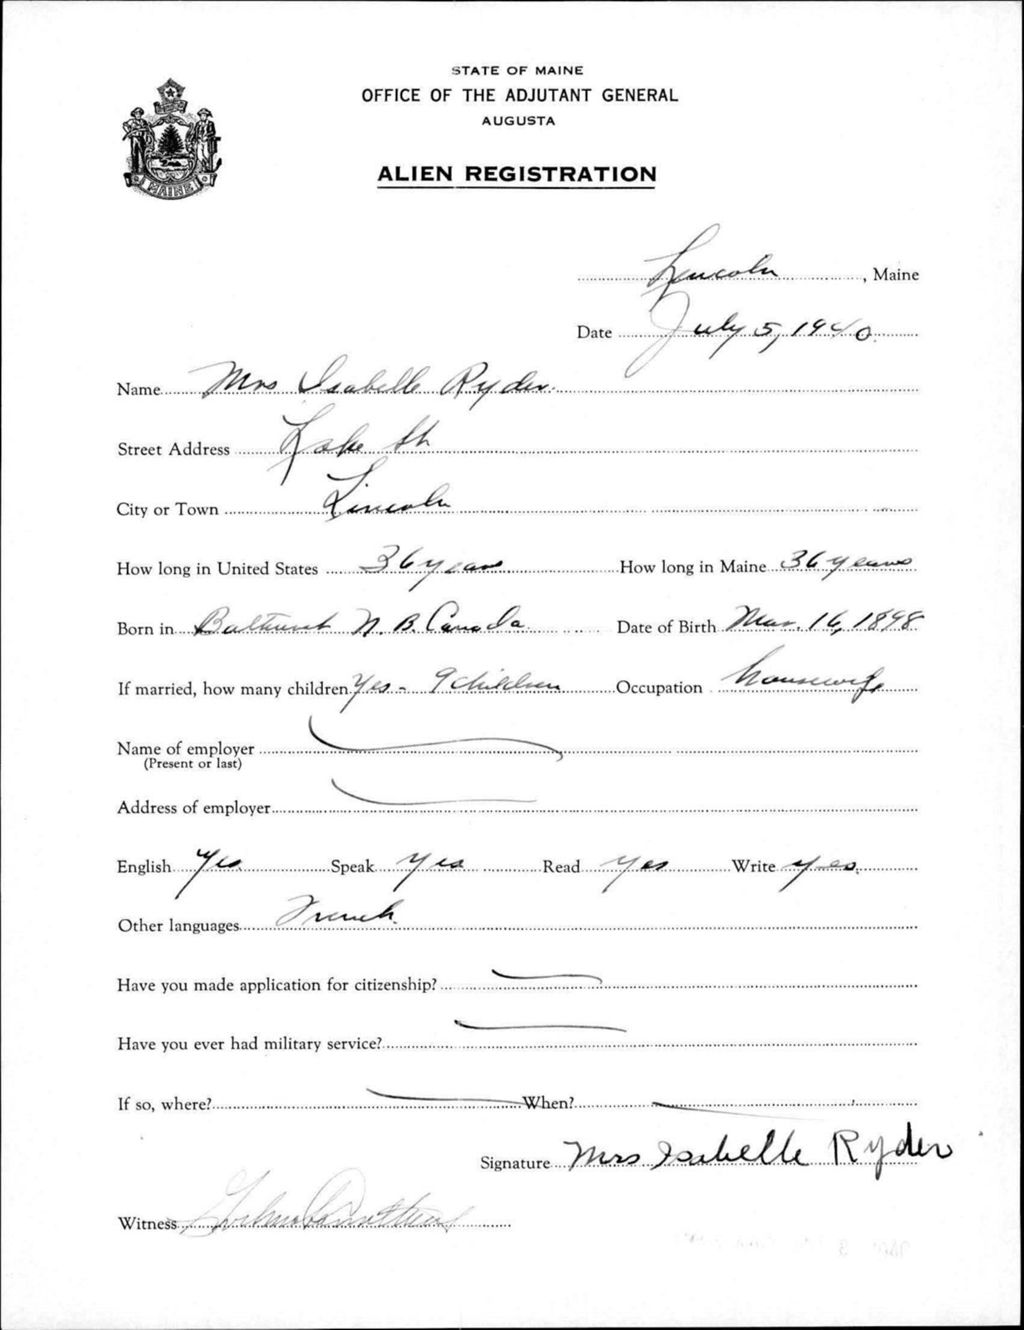 STATE OF MAINE
OFFICE OF THE ADJUTANT GENERAL
AUGUSTA
ALIEN REGISTRATION
MAINE
Lincoln, Maine
Date July 5, 1940
Name Mrs Isabelle Ryder
Street Address Lake St
City or Town Lincoln
How long in United States 36 years How long in Maine 36 years
Born in Bathurst N. B. Canada Date of Birth Mar. 16, 1898
If married, how many children Yes - 9 children Occupation housewife
Name of employer
(Present or last)
Address of employer
English Yes Speak Yes Read Yes Write yes
Other languages French
Have you made application for citizenship?
Have you ever had military service?
If so, where? When?
Signature Mrs Isabelle Ryder
Witness